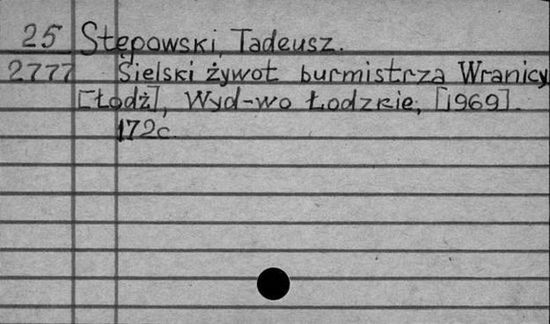 25 Stępowski, Tadeusz.
2777 Sielski żywot burmistrza Wranicy
[Łódź], Wyd-wo Łodzkie, [1969].
172c.